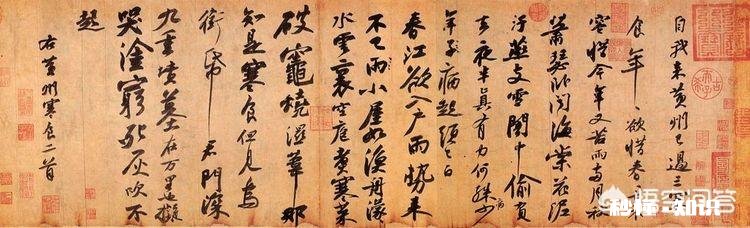 自我来黄州已過三寒
食年〻欲惜春春去不
容惜今年又苦雨兩月秋
蕭瑟卧聞海棠花泥
汙燕支雪闇中偷負
去夜半真有力何殊病少
年子病起須已白
春江欲入户雨勢来
不已雨小屋如漁舟濛〻
水雲裏空庖煮寒菜
破竈燒濕葦那
知是寒食但見烏
銜帋君門深
九重墳墓在万里也擬
哭塗窮死灰吹不
起
右黄州寒食二首
悟空问答
秒懂知识